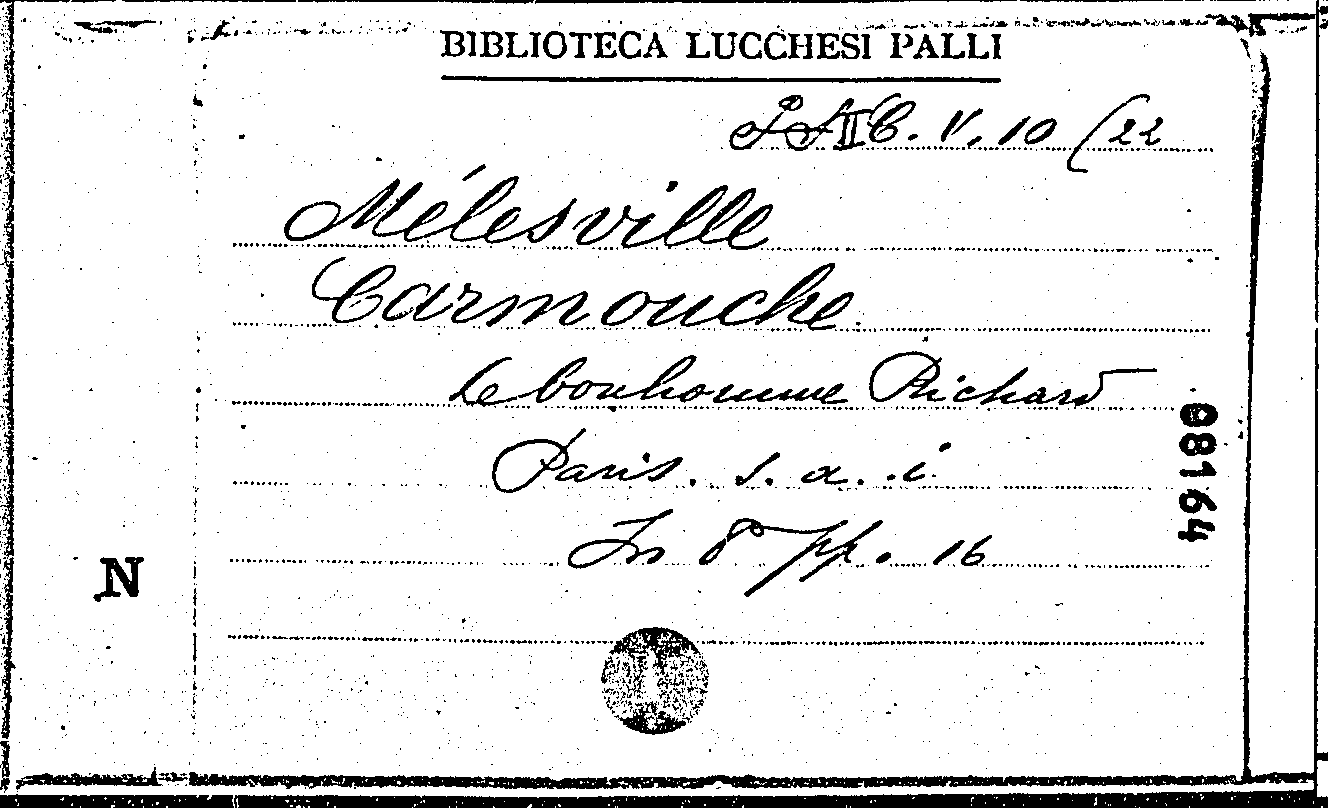 BIBLIOTECA LUCCHESI PALLI
C. V. 10 (22
Mélesville
Carmouche
Le bonhomme Richard
Paris. s. a. i
In 8° pp. 16
98164
N